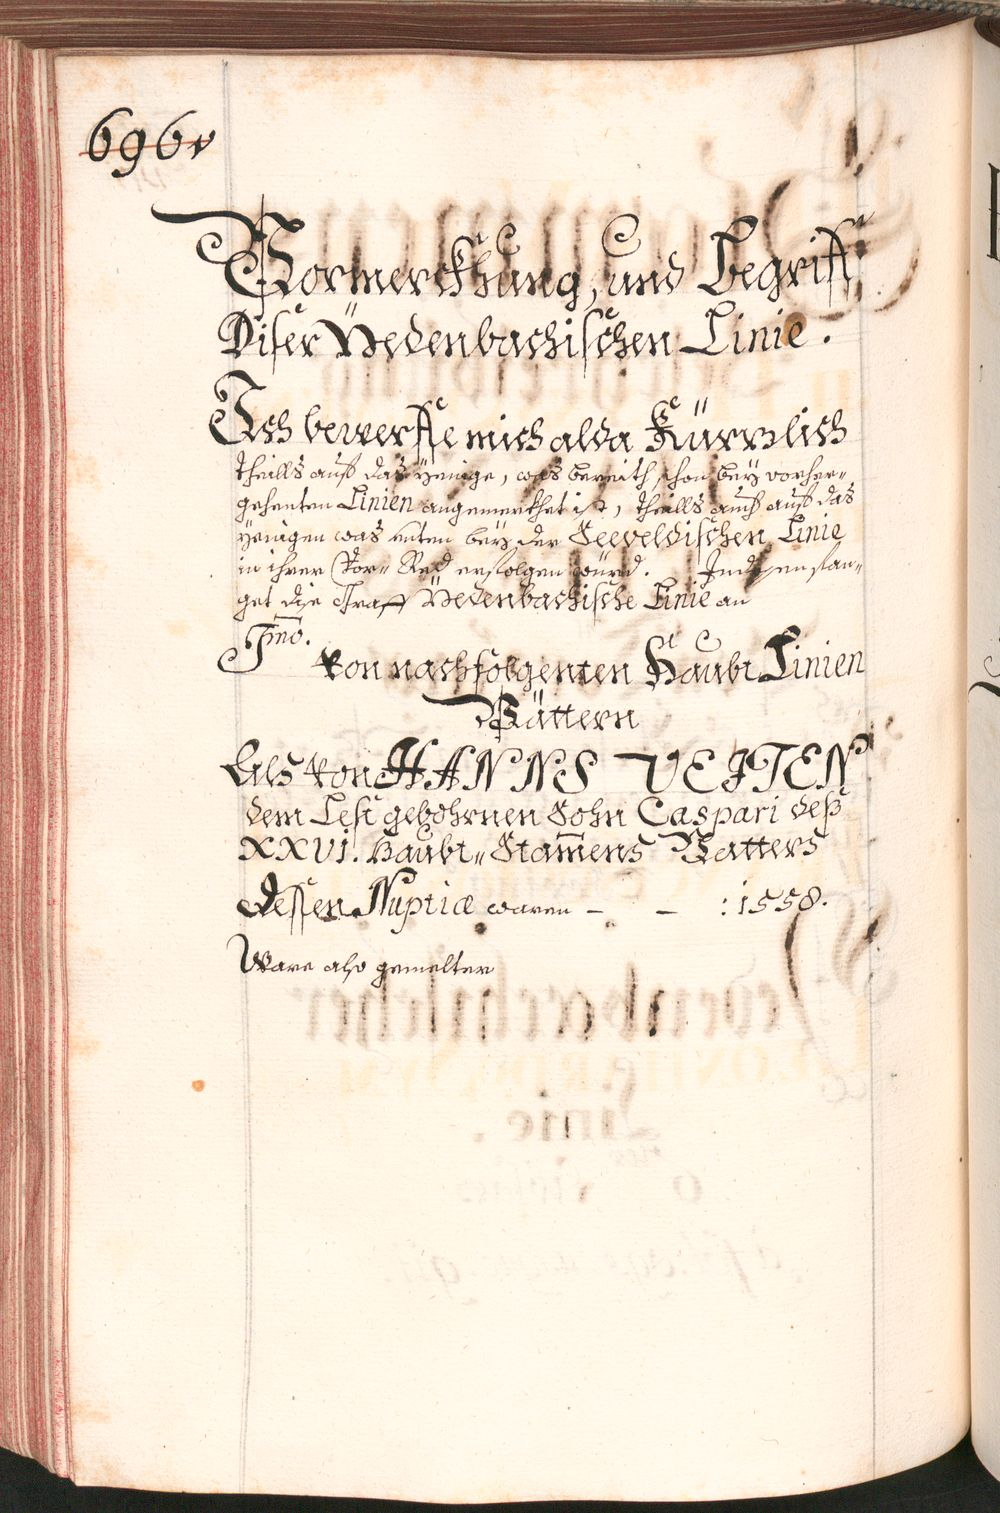 696v
Vormerckhung, und Begriff
Diser Uedenbachischen Linie.
Ich bewerffe mich alda Kürrzlich
theills auf das yenige, was bereith schon bey vorher-
gehenten Linien angemerkhet ist, theills auch auf das
yenigen was unten bey der Seeveldischen Linie
in ihrer Vor- Red erfolgen würd. Indessen fan-
get die Graff Uedenbachische Linie an
Imo.
Von nachfolgenten Haubt Linien
Vättern
Als von HANNS VEITEN
dem Lest gebohrnen Sohn Caspari deß
XXVI. Haubt-Stam̅ens Vatters
dessen Nuptiæ waren - - : 1558.
Ware also gemelter